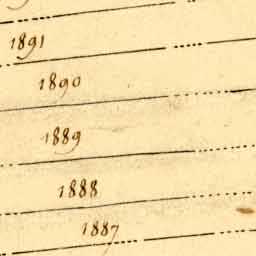 1891
1890
1889
1888
1887